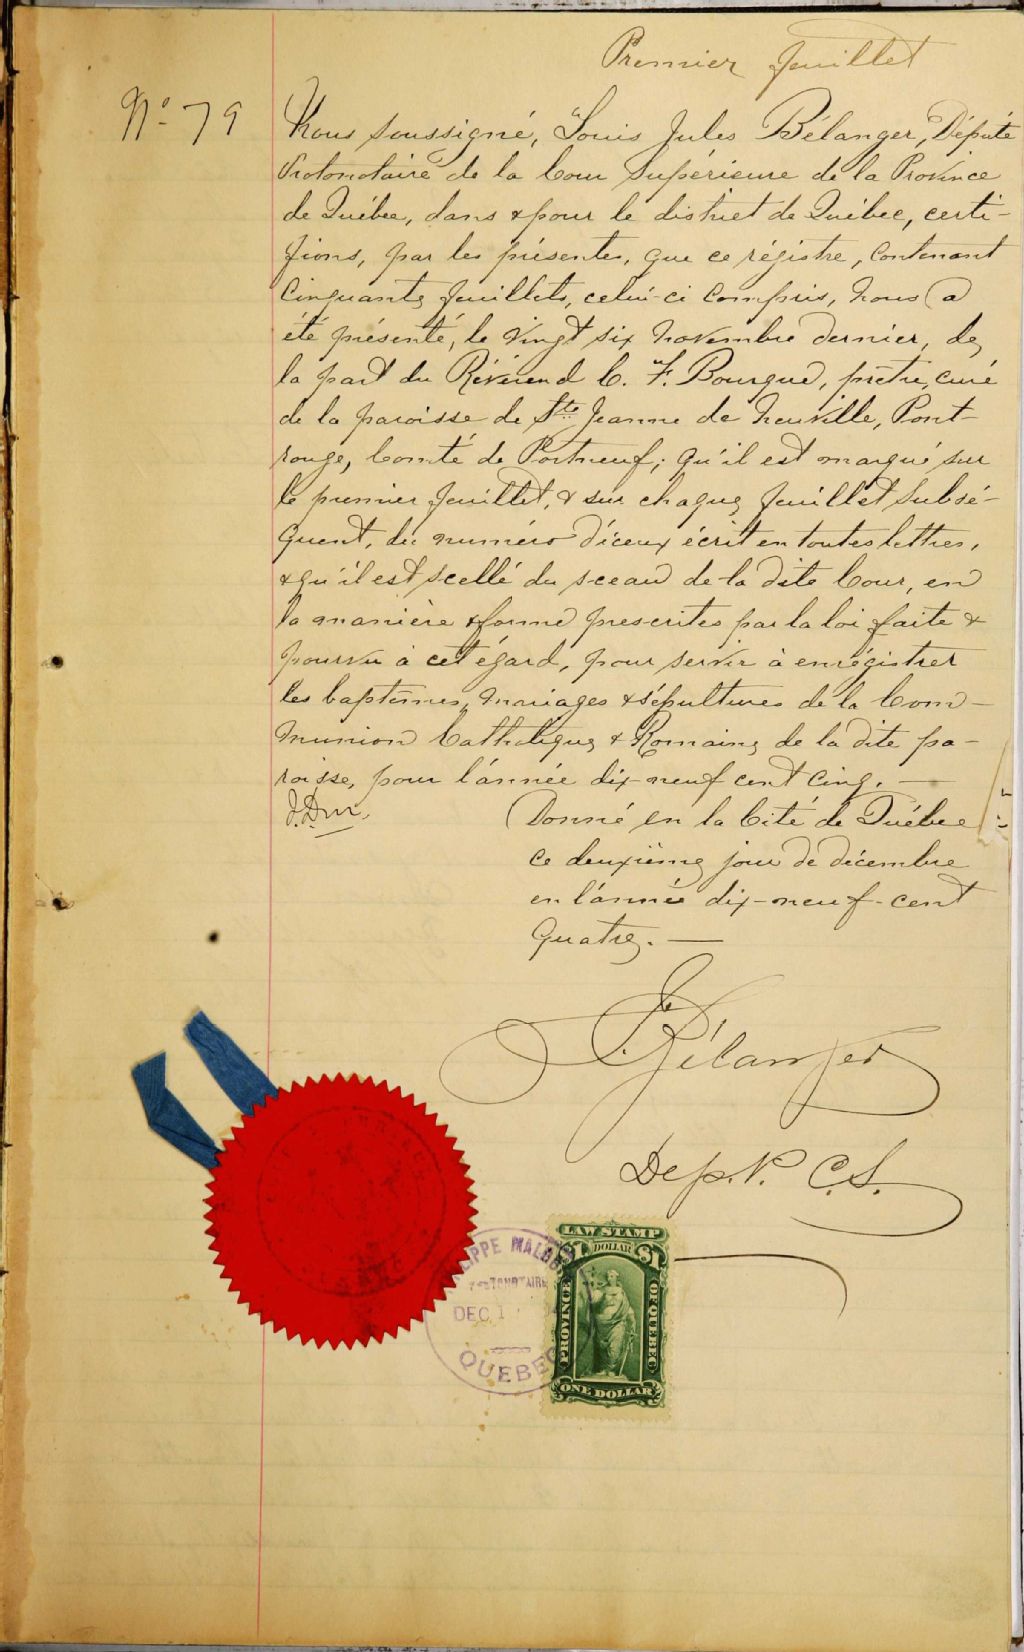 Premier feuillet
No 79
Nous soussigné, Louis Jules Bélanger, Député
Protonotaire de la Cour Supérieure de la Province
de Québec, dans & pour le district de Québec, certi-
fions, par les présentes, que ce régistre, contenant
cinquante feuillets, celui-ci compris, nous a
été présenté, le vingt six novembre dernier, de
la part du Révérend C. F. Bourque, prêtre, curé
de la paroisse de Ste Jeanne de Neuville, Pont-
rouge, Comté de Portneuf; qu'il est marqué sur
le premier feuillet, & sur chaque feuillet subsé-
quent, du numéro d'iceux écrit en toutes lettres,
& qu'il est scellé du sceau de la dite Cour, en
la manière & forme prescrites par la loi faite &
pourvu à cet égard, pour servir à enrégistrer
les baptêmes, mariages & sépultures de la Com-
munion Catholique & Romaine de la dite pa-
roisse, pour l'année dix neuf cent cinq. —
Donné en la Cité de Québec
ce deuxième jour de décembre
en l'année dix-neuf-cent
quatre. —
Bélanger
Dep. P. C.S.
LAW STAMP
1 DOLLAR $1
PROVINCE OF QUEBEC
ONE DOLLAR
DEC 1
QUEBEC